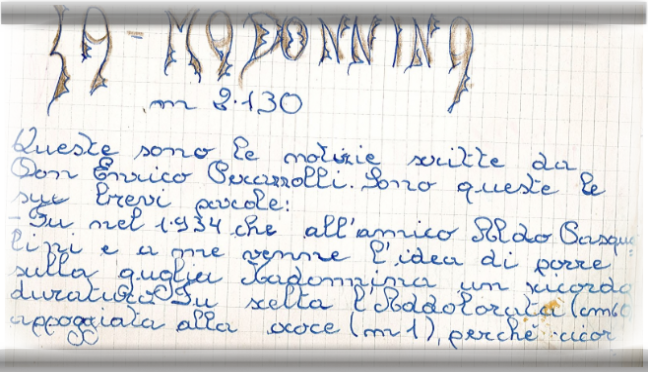 LA - MADONNINA
m 2.130
Queste sono le notizie scritte da
Don Enrico Peruzzolli. Sono queste le
sue brevi parole:
- Fu nel 1.934 che all'amico Aldo Pasqua
lini e a me venne l'idea di porre
sulla guglia Madonnina un ricordo
duraturo. Fu scelta l'Addolorata (cm60
appoggiata alla croce (m 1), perchè ricor